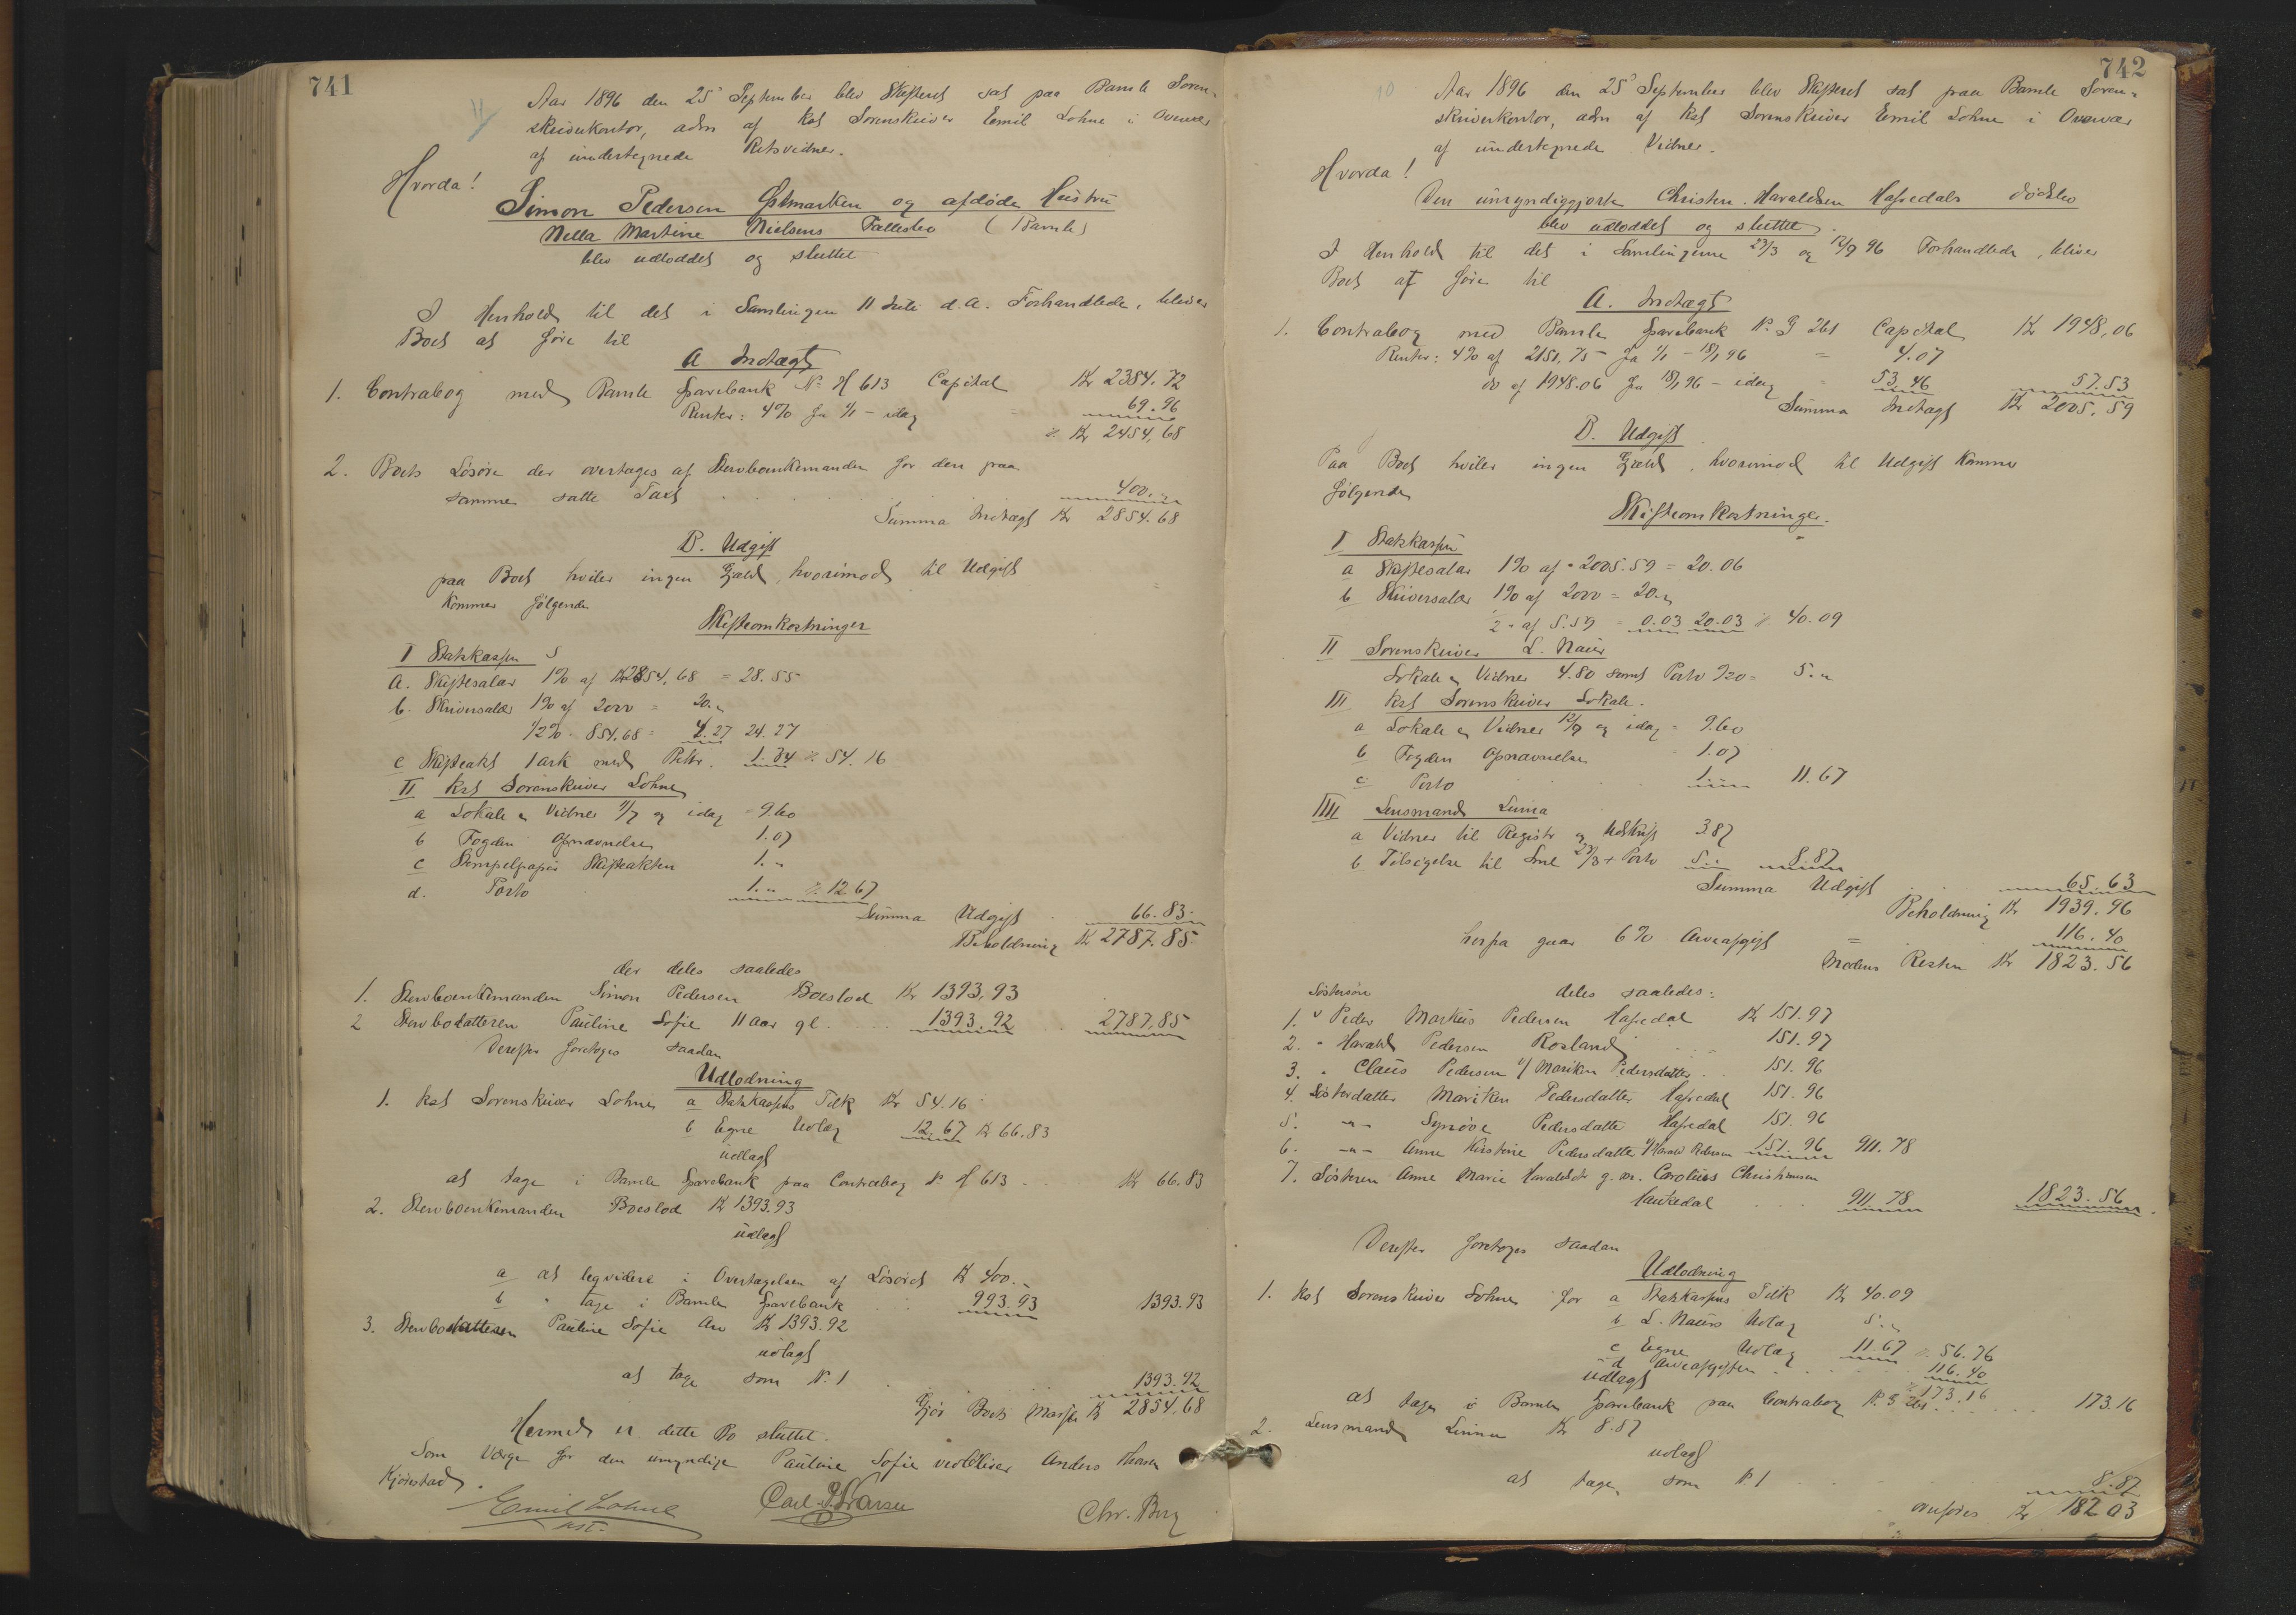 741
Aar 1896 den 25 September blev Skifteret sat paa Bamle Soren-
skriverkontor, adm af kst Sorenskriver Emil Lohne i Overvær
af undertegnede Retsvidner.
Hvorda!
Simon Pedersen Østmarken og afdøde Hustru
Nella Martine Nielsens Fællesbo (Bamle)
blev udloddet og sluttet
I Henhold til det i Samlingen 11 Juli d.A. Forhandlede, bliver
Boet at føre til
A Indtægt
1. Contrabog med Bamle Sparebank No H 613 Capital Kr 2384.72
Renter: 4% fra 1/1 - idag 69.96
Kr 2454,68
2. Boets Løsøre der overtages af Stervboenkemanden for den paa
samme satte Taxt 400.-
Summa Indtægt Kr 2854.68
B. Udgift
paa Boet hviler ingen Gjæld, hvorimod til Udgift
kommer følgende
Skifteomkostninger
I Statskassen
a. Skiftesalær 1% af Kr 2854,68 = 28.55
b. Skriversalær 1% af 2000 = 20.„
1/2% - 854.68 = 4.27 24.27
c Skifteakt 1 ark med Rekv. 1.34 54.16
II kst Sorenskriver Lohne
a Lokale & Vidner 11/7 og idag = 9.60
b Fogden Opnævnelse 1.07
c Stempelpapir Skifteakten 1.„
d. Porto 1.„ 12.67
Summa Udgift 66.83
Beholdning Kr 2787.85
der deles saaledes
1. Stervboenkemanden Simon Pedersen Boeslod Kr 1393,93
2 Stervbodatteren Pauline Sofie 11 aar gl. 1393.92 2787,85
Derefter foretoges saadan
Udlodning
1. kst Sorenskriver Lohne a Statskassens Tilk Kr 54.16
b Egne Udlæg 12.67 Kr 66.83
udlagt
at tage i Bamle Sparebank paa Contrabog No H 613 Kr 66.83
2. Stervboenkemanden Boeslod Kr 1393.93
udlagt
a at leqvidere i Overtagelsen af Løsøret Kr 400.-
b " tage i Bamle Sparebank 993.93 1393.93
3. Stervbodatteren Pauline Sofie Arv Kr 1393.92
udlagt
at tage som No 1 1393.92
Gjør Boets Masse Kr 2854,68
Hermed er dette Bo sluttet.
Som Værge for den umyndige Pauline Sofie vedbliver Anders
Kjørestad.
Emil Lohne
kst.
Carl Larsen
Chr. Berg
742
10
Aar 1896 den 25 September blev Skifteret sat paa Bamle Soren-
skriverkontor, adm af kst Sorenskriver Emil Lohne i Overvær
af undertegnede Vidner.
Hvorda!
Den umyndiggjorte Christen Haraldsen Hafredals Dødsbo
blev udloddet og sluttet
I Henhold til det i Samlingerne 23/3 og 12/9 96 Forhandlede, bliver
Boet at føre til
A. Indtægt
1. Contrabog med Bamle Sparebank No G 261 Capital Kr 1948,06
Renter: 4% af 2151,75 - fra 1/1 - 18/1 96 = 4.07
do af 1948.06 fra 18/1 96 - idag = 53.46 57.53
Summa Indtægt Kr 2005,59
B. Udgift
Paa Boet hviler ingen Gjæld, hvorimod til Udgift kommer
følgende
Skifteomkostninger.
I Statskassen
a Skiftesalær 1% af 2005.59 = 20.06
b Skriversalær 1% af 2000 = 20.„
1/2 " af 5.59 = 0.03 20.03 40.09
II Sorenskriver L. Naur
Lokale & Vidner 4.80 samt Porto 20 = 5.„
III kst Sorenskriver Lohne.
a Lokale & Vidner 12/9 og idag = 9.60
b Fogden Opnævnelse 1.07
c Porto 1.- 11.67
IIII Lensmand Linna
a Vidner til Registr og Udskrift 3.87
b Tilsigelse til Sml 23/3 + Porto 5.- 8.87
Summa Udgift 65.63
Beholdning Kr 1939.96
herfra gaar 6% Arveafgift = 116.40
Medens Resten Kr 1823.56
deles saaledes:
Søstersøn
1. " Peder Markus Pedersen Hafredal Kr 151.97
2. " Harald Pedersen Rosland 151.97
3. " Claus Pedersen v/ Mariken Pedersdatter 151.96
4. Søsterdatter Mariken Pedersdatter Hafredal 151.96
5. -"- Synøve Pedersdatter Hafredal 151.96
6. -"- Anne Kirstine Pedersdatter v/ Harald Pedersen 151.96 911.78
7. Søsteren Anne Marie Haraldsdtr g. m. Carolius Christensen
Haukedal 911.78 1823.56
Derefter foretoges saadan
Udlodning
1. kst Sorenskriver Lohne for a Statskassens Tilk Kr 40.09
b L. Naurs Udlæg 5.„
c Egne Udlæg 11.67 56.76
d Arveafgiften 116.40
udlagt 173.16
at tage i Bamle Sparebank paa Contrabog No G 261 173.16
2. Lensmand Linna Kr 8.87
udlagt
at tage som No 1 8.87
overføres Kr 182.03